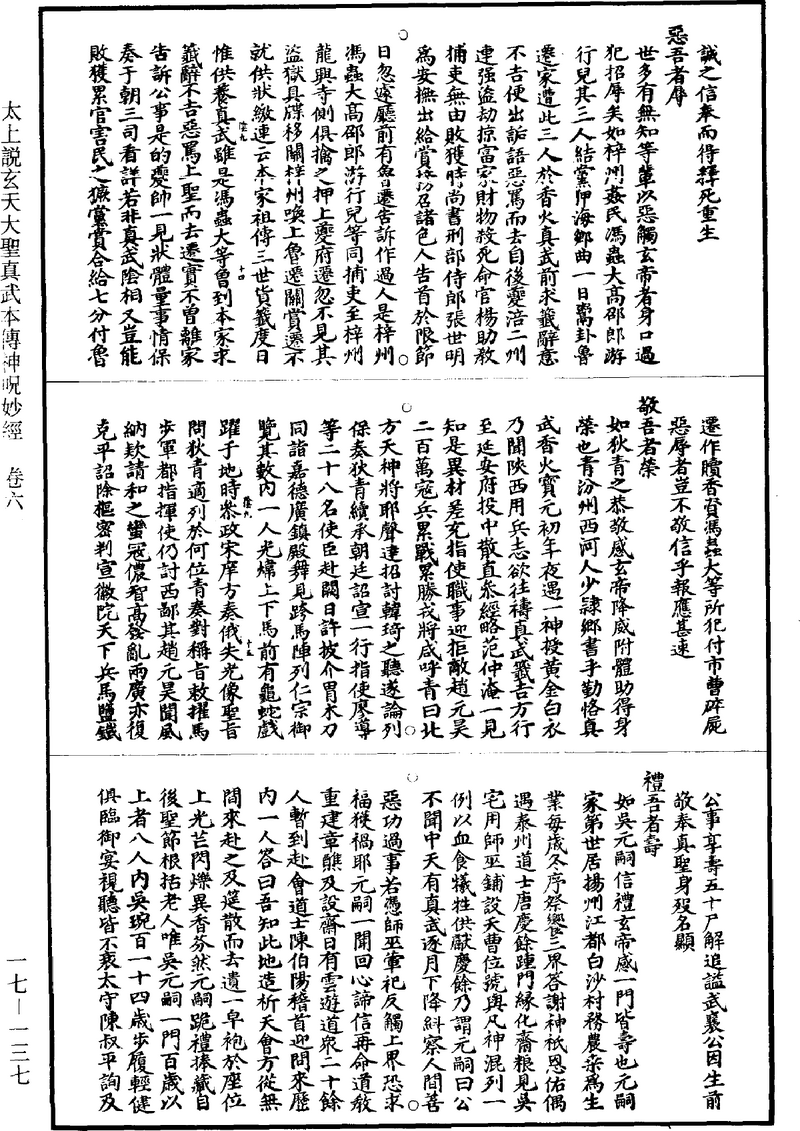 誠之信奉而得釋死重生
惡吾者辱
世多有無知等輩以惡觸玄帝者身口過
犯招辱矣如梓州姦民馮蟲大高邵郎游
行兒其三人結黨狎海鄉曲一日鬻卦魯
遷家遭此三人於香火真武前求籤辭意
不吉便出詬語惡罵而去自後夔涪二州
連强盜劫掠富家財物殺死命官楊助教
捕吏無由敗獲時尚書刑部侍郎張世明
為安撫出給賞牓招召諸色人告首於限節
日忽遲廳前有魯遷告訴作過人是梓州
馮蟲大高邵郎游行兒等同捕吏至梓州
龍興寺側俱擒之押上夔府遷忽不見其
盜獄具牒移關梓州喚上魯遷關賞遷不
就供狀繳連云本家祖傳三世貨籤度日
惟供養真武雖是馮蟲大等曾到本家求
籤辭不吉惡罵上聖而去遷實不曾離家
告訴公事是的夔帥一見狀體量事情保
奏于朝三司看詳若非真武陰相又豈能
敗獲累官害民之獗黨賞合給七分付魯
遷作贖香資馮蟲大等所犯付市曹碎屍
惡辱者豈不敬信乎報應甚速
敬吾者榮
如狄青之恭敬感玄帝降威附體助得身
榮也青汾州西河人少隸鄉書手勤恪真
武香火寶元初年夜遇一神授黃金白衣
乃聞陝西用兵志欲往禱真武籤吉方行
至延安府投中散直恭經略范仲淹一見
知是異材差充指使職事迎拒敵趙元昊
二百萬寇兵累戰累勝戎將咸呼青曰北
方天神將耶聲達招討韓琦之聽遂論列
保奏狄青續承朝廷詔宣一行指使廖導
等二十八名使臣赴闕日許披介冑木刀
同詣嘉德廣鎮殿舞見跨馬陣列仁宗御
覽其數內一人光燁上下馬前有龜蛇戲
躍于地時叅政宋庠方奏俄失光像聖旨
問狄青適列於何位青奏對稱旨敕擢馬
步軍都指揮使仍討西鄙其趙元昊聞風
納欵請和之蠻冠儂智高發亂兩廣亦復
克平詔除樞密判宣徽院天下兵馬鹽鐵
公事享壽五十尸解追謚武襄公因生前
敬奉真聖身歿名顯
禮吾者壽
如吳元嗣信禮玄帝感一門皆壽也元嗣
家第世居揚州江都白沙村務農桒為生
業每歲冬序祭饗三界荅謝神祇恩佑偶
遇泰州道士唐慶餘踵門緣化齋粮見吳
宅用師巫鋪設天曹位號與凡神混列一
例以血食犧牲供獻慶餘乃謂元嗣曰公
不聞中天有真武逐月下降糾察人間善
惡功過事若憑師巫葷祀反觸上界恐求
福獲禍耶元嗣一聞回心諦信再命道教
重建章醮及設齋日有雲遊道衆二十餘
人暫到赴會道士陳伯陽稽首迎問來歷
內一人荅曰吾知此地造祈天會方從無
間來赴之及筵散而去遺一皁袍於座位
上光芒閃爍異香芬然元嗣跪禮捧藏自
後聖節根括老人唯吳元嗣一門百歲以
上者八人內吳琬百一十四歲步履輕健
俱臨御宴視聽皆不衰太守陳叔平詢及
太上說玄天大聖真武本傳神呪妙經 卷六
一七—一三七